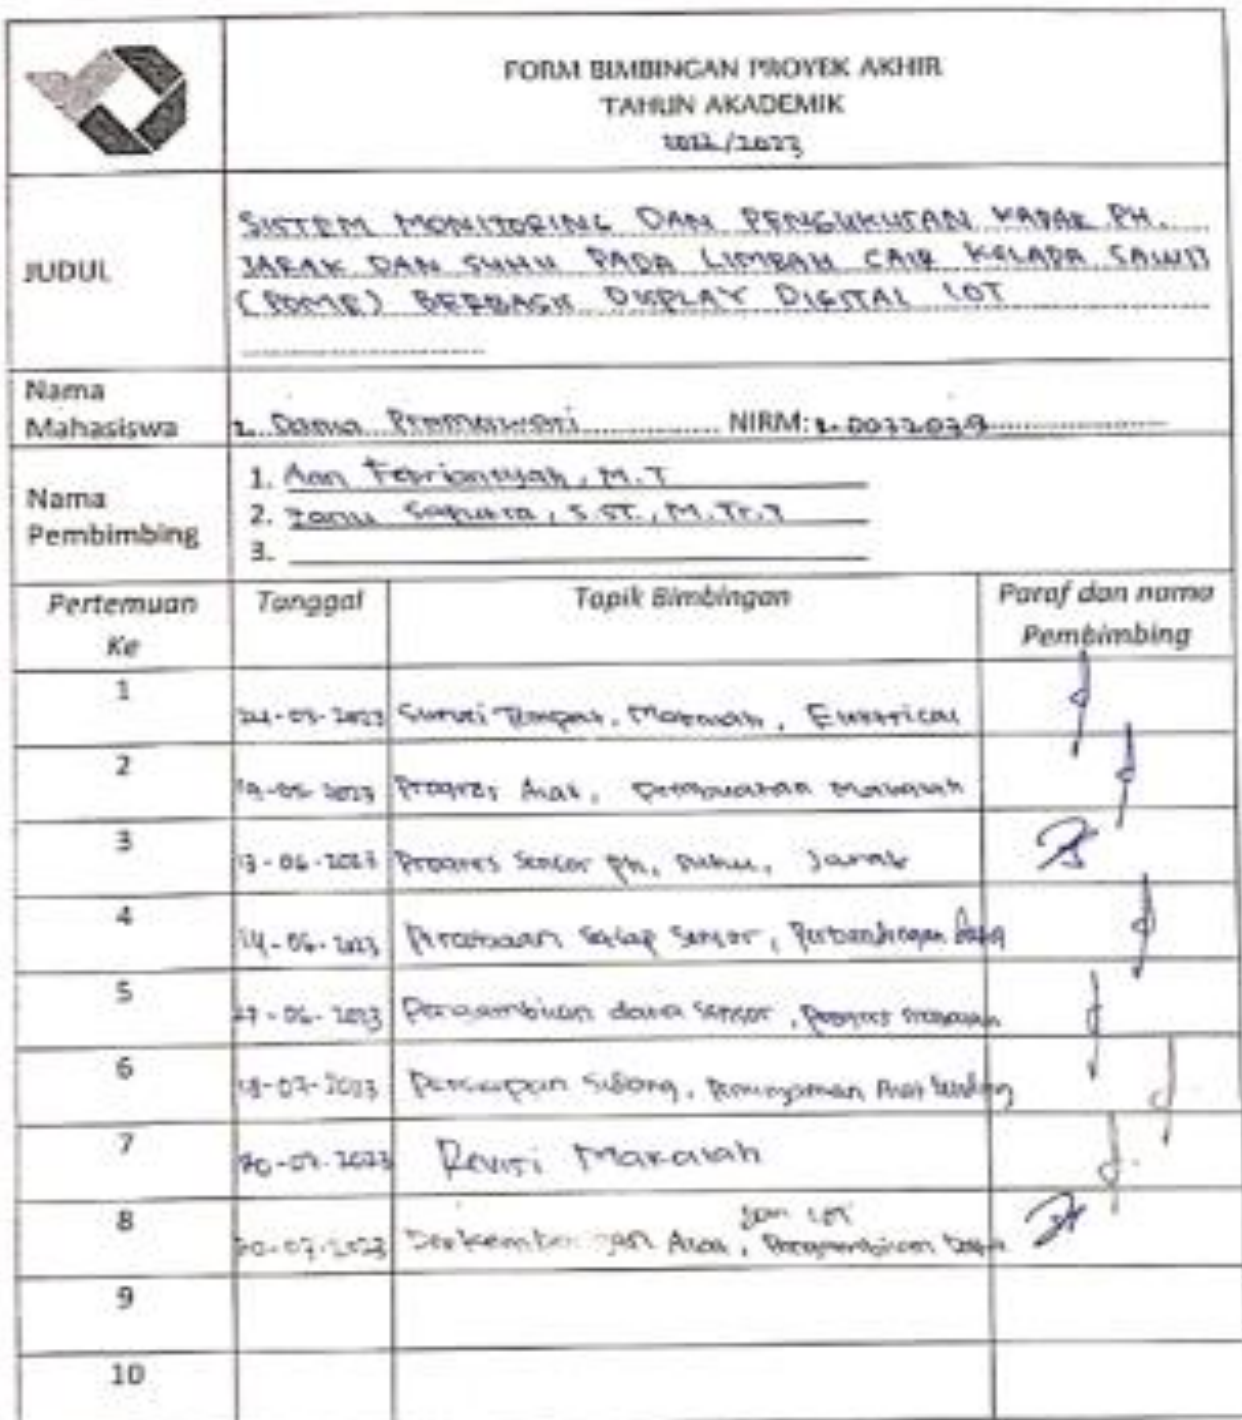 FORM BIMBINGAN PROYEK AKHIR
TAHUN AKADEMIK
2022/2023
JUDUL
SISTEM MONITORING DAN PENGUKURAN KADAR PH,
JARAK DAN SUHU PADA LIMBAH CAIR KELAPA SAWIT
(POME) BERBASIS DISPLAY DIGITAL IOT
Nama
Mahasiswa
NIRM:
Nama
Pembimbing
1. Aan Febriansyah, M.T
2. Zanu Saputra, S.ST., M.Tr.T
3.
Pertemuan
Ke
Tanggal
Topik Bimbingan
Paraf dan nama
Pembimbing
1
Survei Tempat, Makalah, Elektrical
2
Progres Alat, Pembuatan Makalah
3
13-06-2023 Progres Sensor ph, suhu, Jarak
4
14-06-2023 Percobaan Setiap Sensor, Perbandingan
5
27-06-2023 Pengambilan data sensor, Progres makalah
6
18-07-2023 Persiapan Sidang, Peminjaman Alat
7
20-07-2023 Revisi Makalah
8
dan IOT
20-07-2023 Alat, Pengambilan
9
10